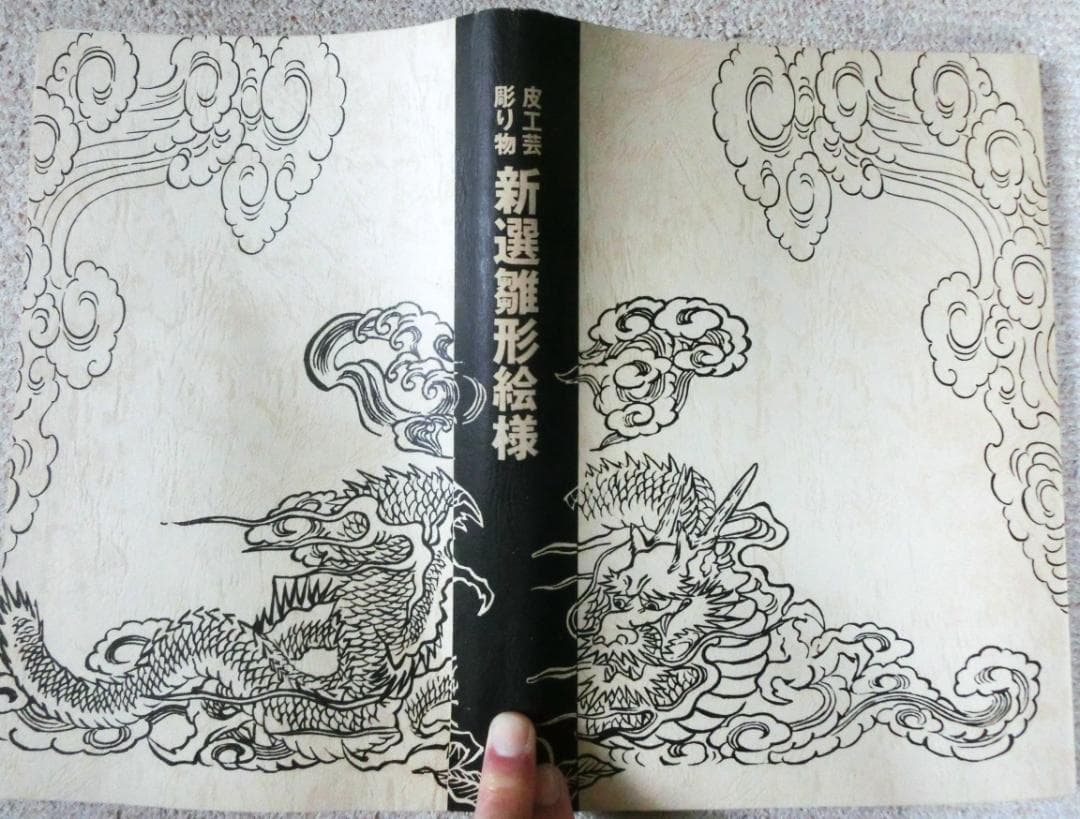 皮工芸
彫り物
新選雛形絵様